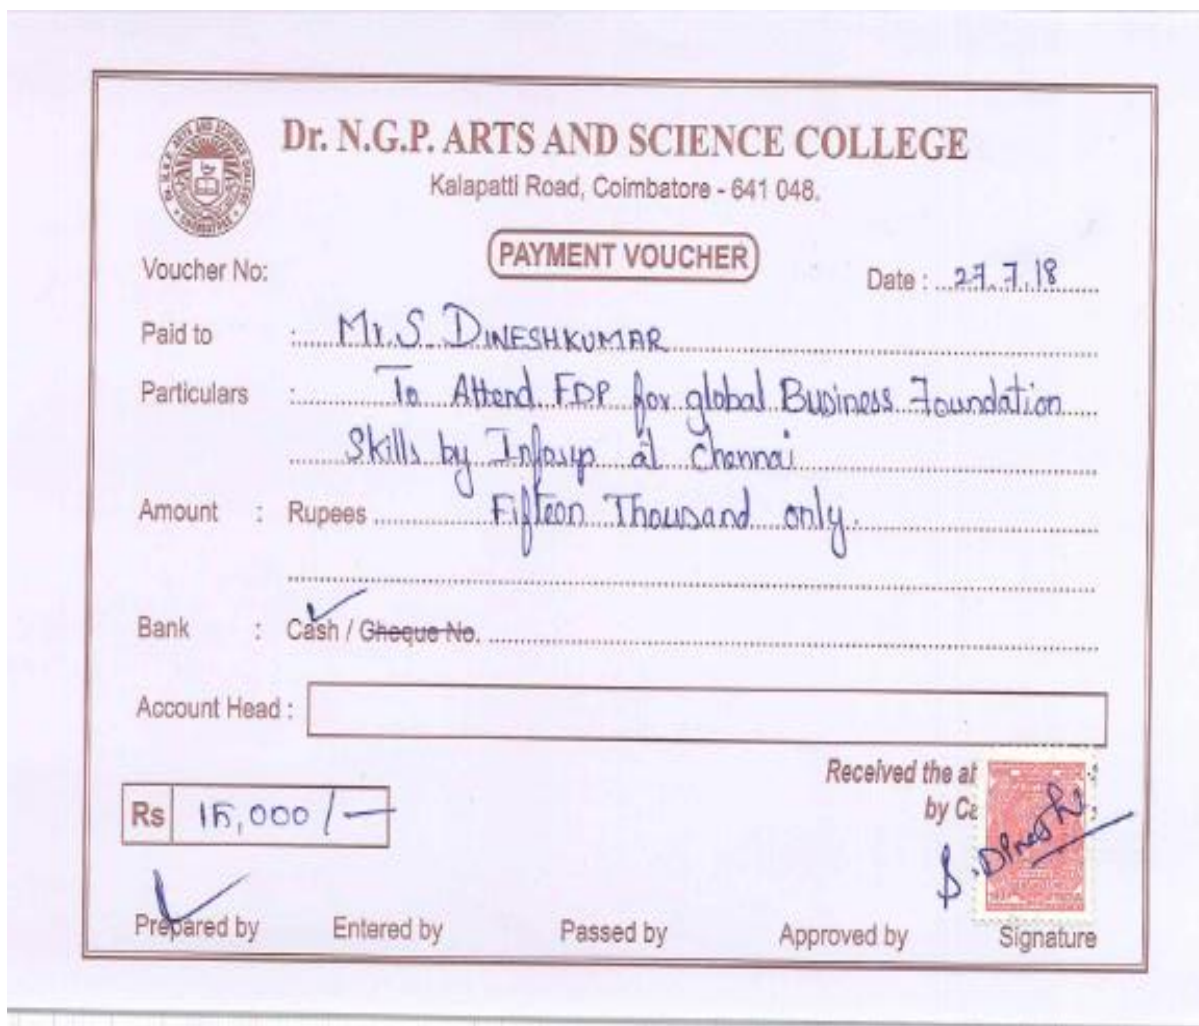 Dr. N.G.P. ARTS AND SCIENCE COLLEGE
Kalapatti Road, Coimbatore - 641 048.
PAYMENT VOUCHER
Voucher No:
Date : 27.7.18
Paid to : Mr. S. DINESHKUMAR
Particulars : To Attend FDP for global Business Foundation
Skills by Infosys at Chennai
Amount : Rupees Fifteen Thousand only.
Bank : Cash / Cheque No.
Account Head :
Received the
by
Rs 15,000/-
S. Dinesh
Prepared by Entered by Passed by Approved by Signature